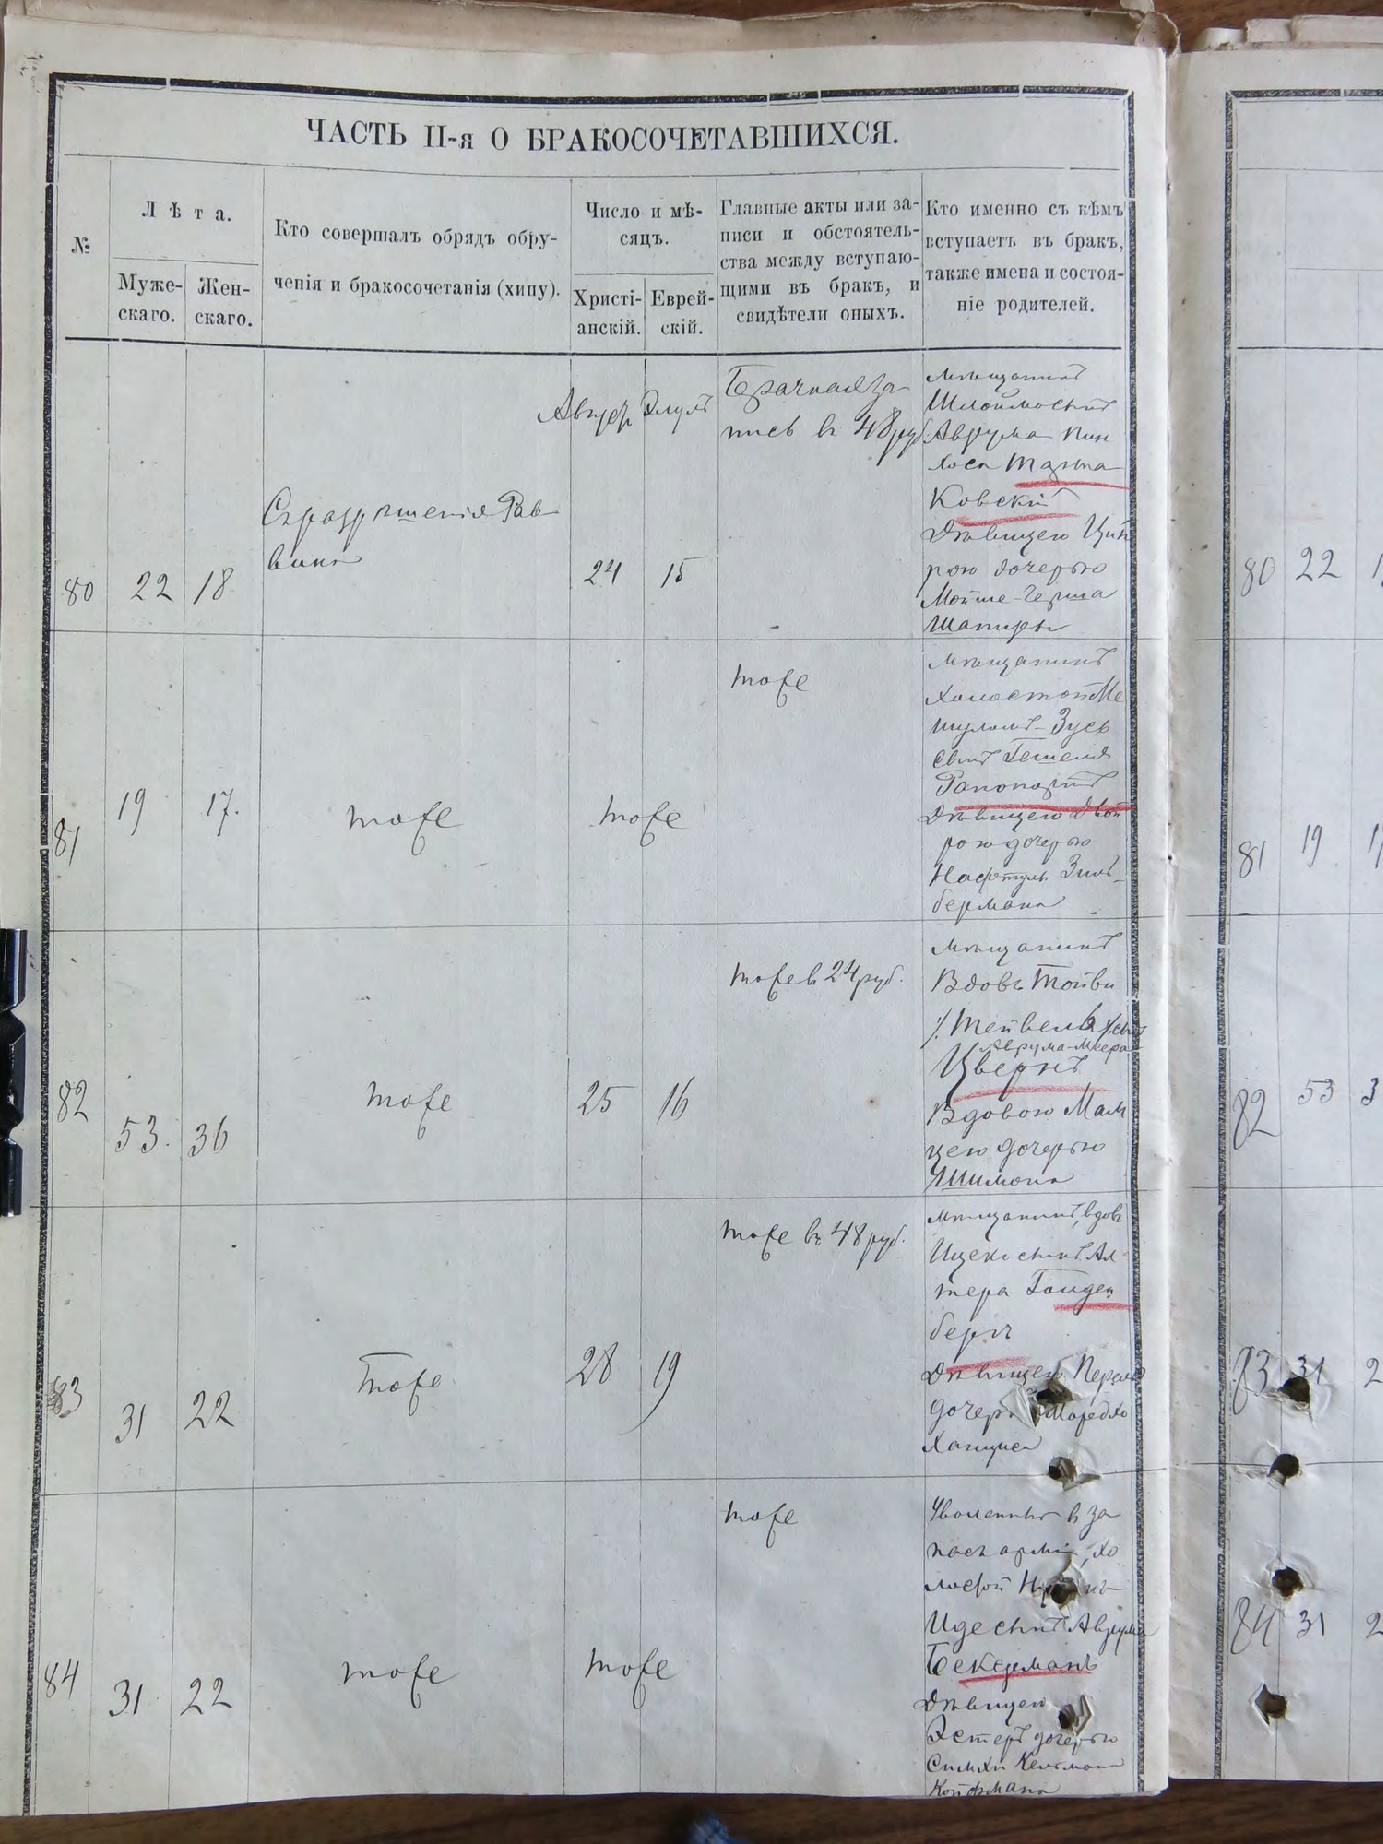 ЧАСТЬ II-я О БРАКОСОЧЕТАВШИХСЯ.
№
Лѣта.
Муже-
скаго.
Жен-
скаго.
Кто совершалъ обрядъ обру-
ченія и бракосочетанія (хипу).
Число и мѣ-
сяцъ.
Христі-
анскій.
Еврей-
скій.
Главные акты или за-
писи и обстоятель-
ства между вступаю-
щими въ бракъ, и
свидѣтели оныхъ.
Кто именно съ кѣмъ
вступаетъ въ бракъ,
также имена и состоя-
ніе родителей.
80
22
18
Съ разрѣшенія Рав
вина
Август
Элулъ
24
15
Брачная за-
пись въ 48 руб.
мѣщанинъ
Аврума Пин
хоса
ковскій
дѣвицею Цип
рою дочерью
Мойше-Герша
Шапиры
81
19
17.
тоже
тоже
тоже
мѣщанинъ
холостой Ме
шуломъ-Зусь
сынъ Гешеля
Рапопортъ
дѣвицею Двой
рою дочерью
Нафтулы Зиль-
бермана
82
53.
36
тоже
25
16
тоже в 24 руб.
мѣщанинъ
Вдовъ Тойви
Аврума-Меера
Цвернъ
Вдовою Мал
цею дочерью
Шимона
83
31
22
тоже
28
19
тоже въ 48 руб.
мѣщанинъ, вдовъ
Ицекъ сынъ Ал-
тера Гольден
бергъ
дѣвицею
дочерью Мордхо
84
31
22
тоже
тоже
тоже
Уволенный в за
пасъ арміи, хо
лостой
Иде сынъ Аврума
Бекерманъ
дѣвицею
Эстеръ дочерью
Симхи Кельмана
Койфмана
80 22
81 19
82 53
83 31 2
84 31 2